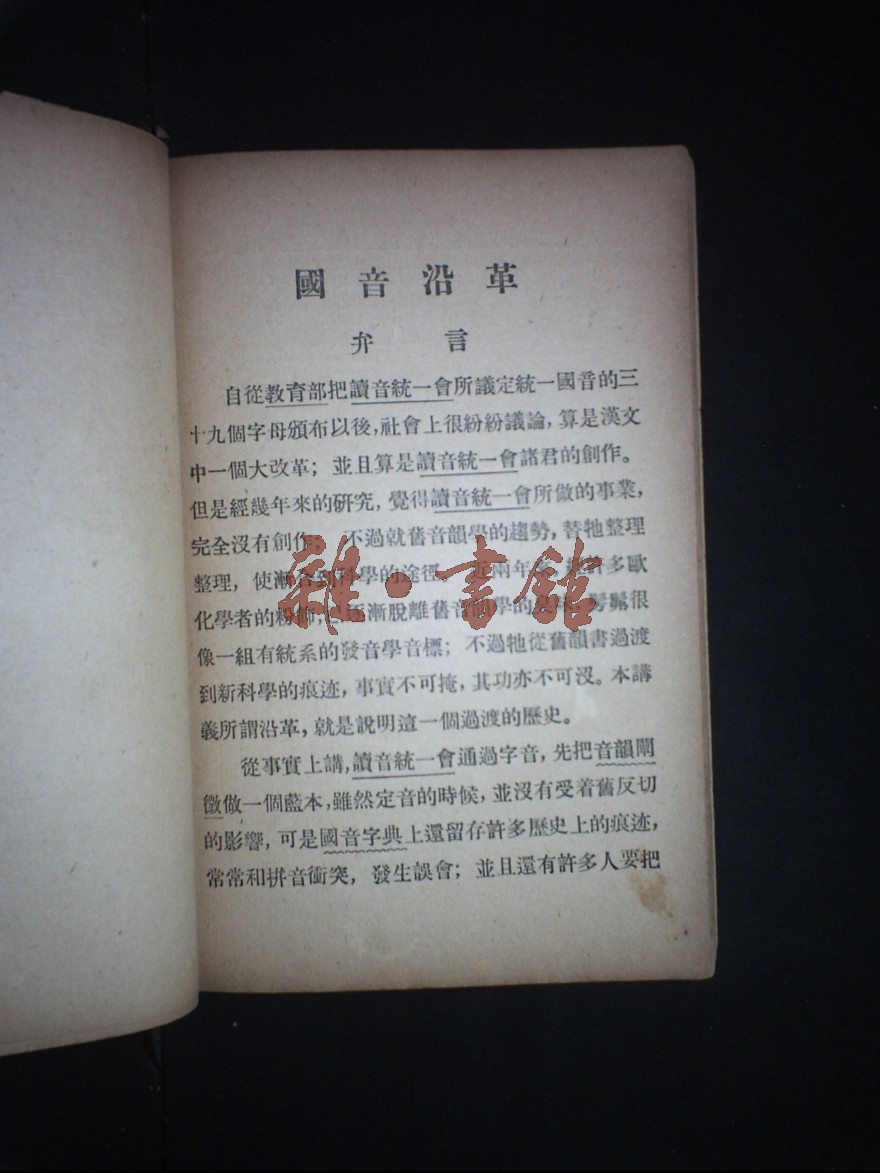 國音沿革
弁言
自從教育部把讀音統一會所議定統一國音的三
十九個字母頒布以後,社會上很紛紛議論,算是漢文
中一個大改革;並且算是讀音統一會諸君的創作。
但是經幾年來的硏究,覺得讀音統一會所做的事業,
完全沒有創作;不過就舊音韻學的趨勢,替牠整理
整理,使漸合到科學的途徑。近兩年來,經許多歐
化學者的粉飾,已逐漸脫離舊音韻學的臭味,髣髴很
像一組有統系的發音學音標;不過牠從舊韻書過渡
到新科學的痕迹,事實不可掩,其功亦不可沒。本講
義所謂沿革,就是說明這一個過渡的歷史。
從事實上講,讀音統一會通過字音,先把音韻闡
微做一個藍本,雖然定音的時候,並沒有受着舊反切
的影響,可是國音字典上還留存許多歷史上的痕迹,
常常和拼音衝突,發生誤會;並且還有許多人要把
雜·書館